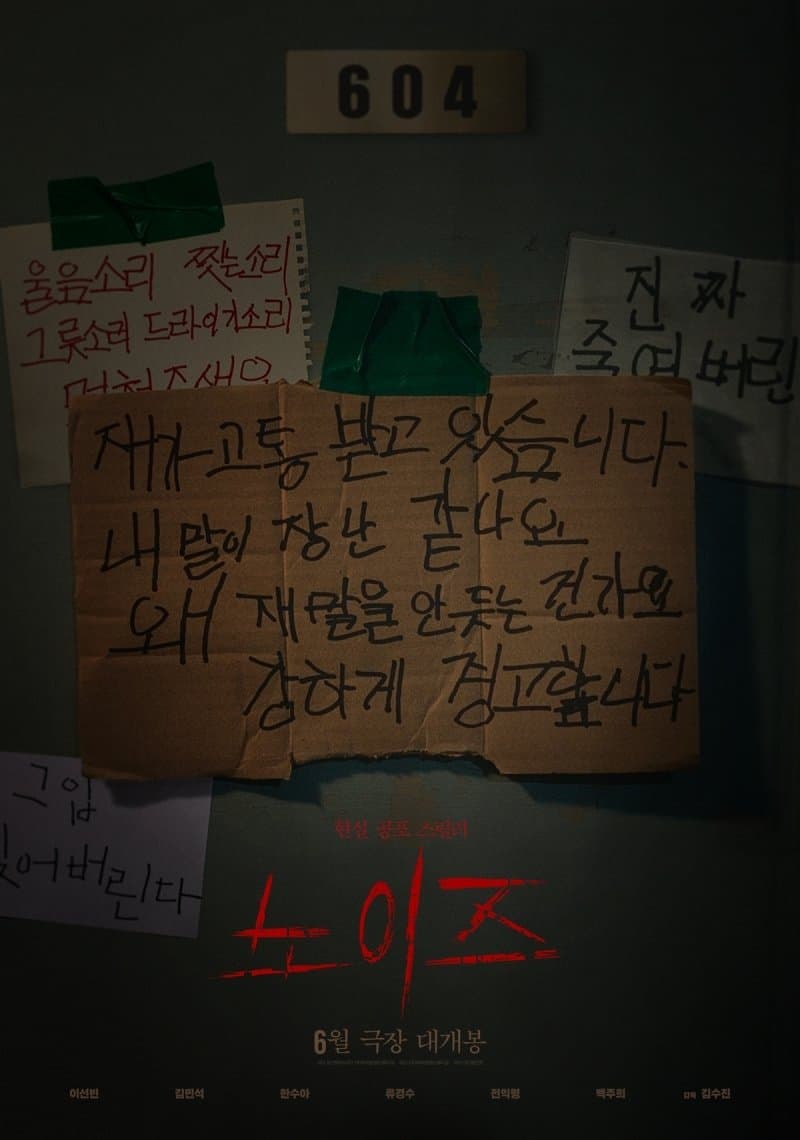 604
울음소리 찢는소리
그릇소리 드라이기소리
멈춰주세요
진짜
죽여버린
재가 고통 받고 있습니다.
내 말이 장난 같나요
왜 재 말을 안 듯는 건가요
강하게 경고합니다
그 입
찢어버린다
현실 공포 스릴러
노이즈
6월 극장 대개봉
이선빈 김민석 한수아 류경수 전익령 백주희 감독 김수진